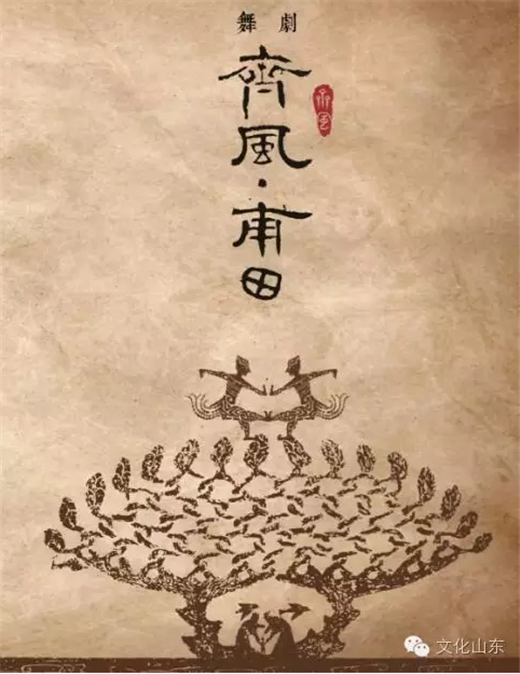 舞劇
齊風·甫田
齊風
文化山东